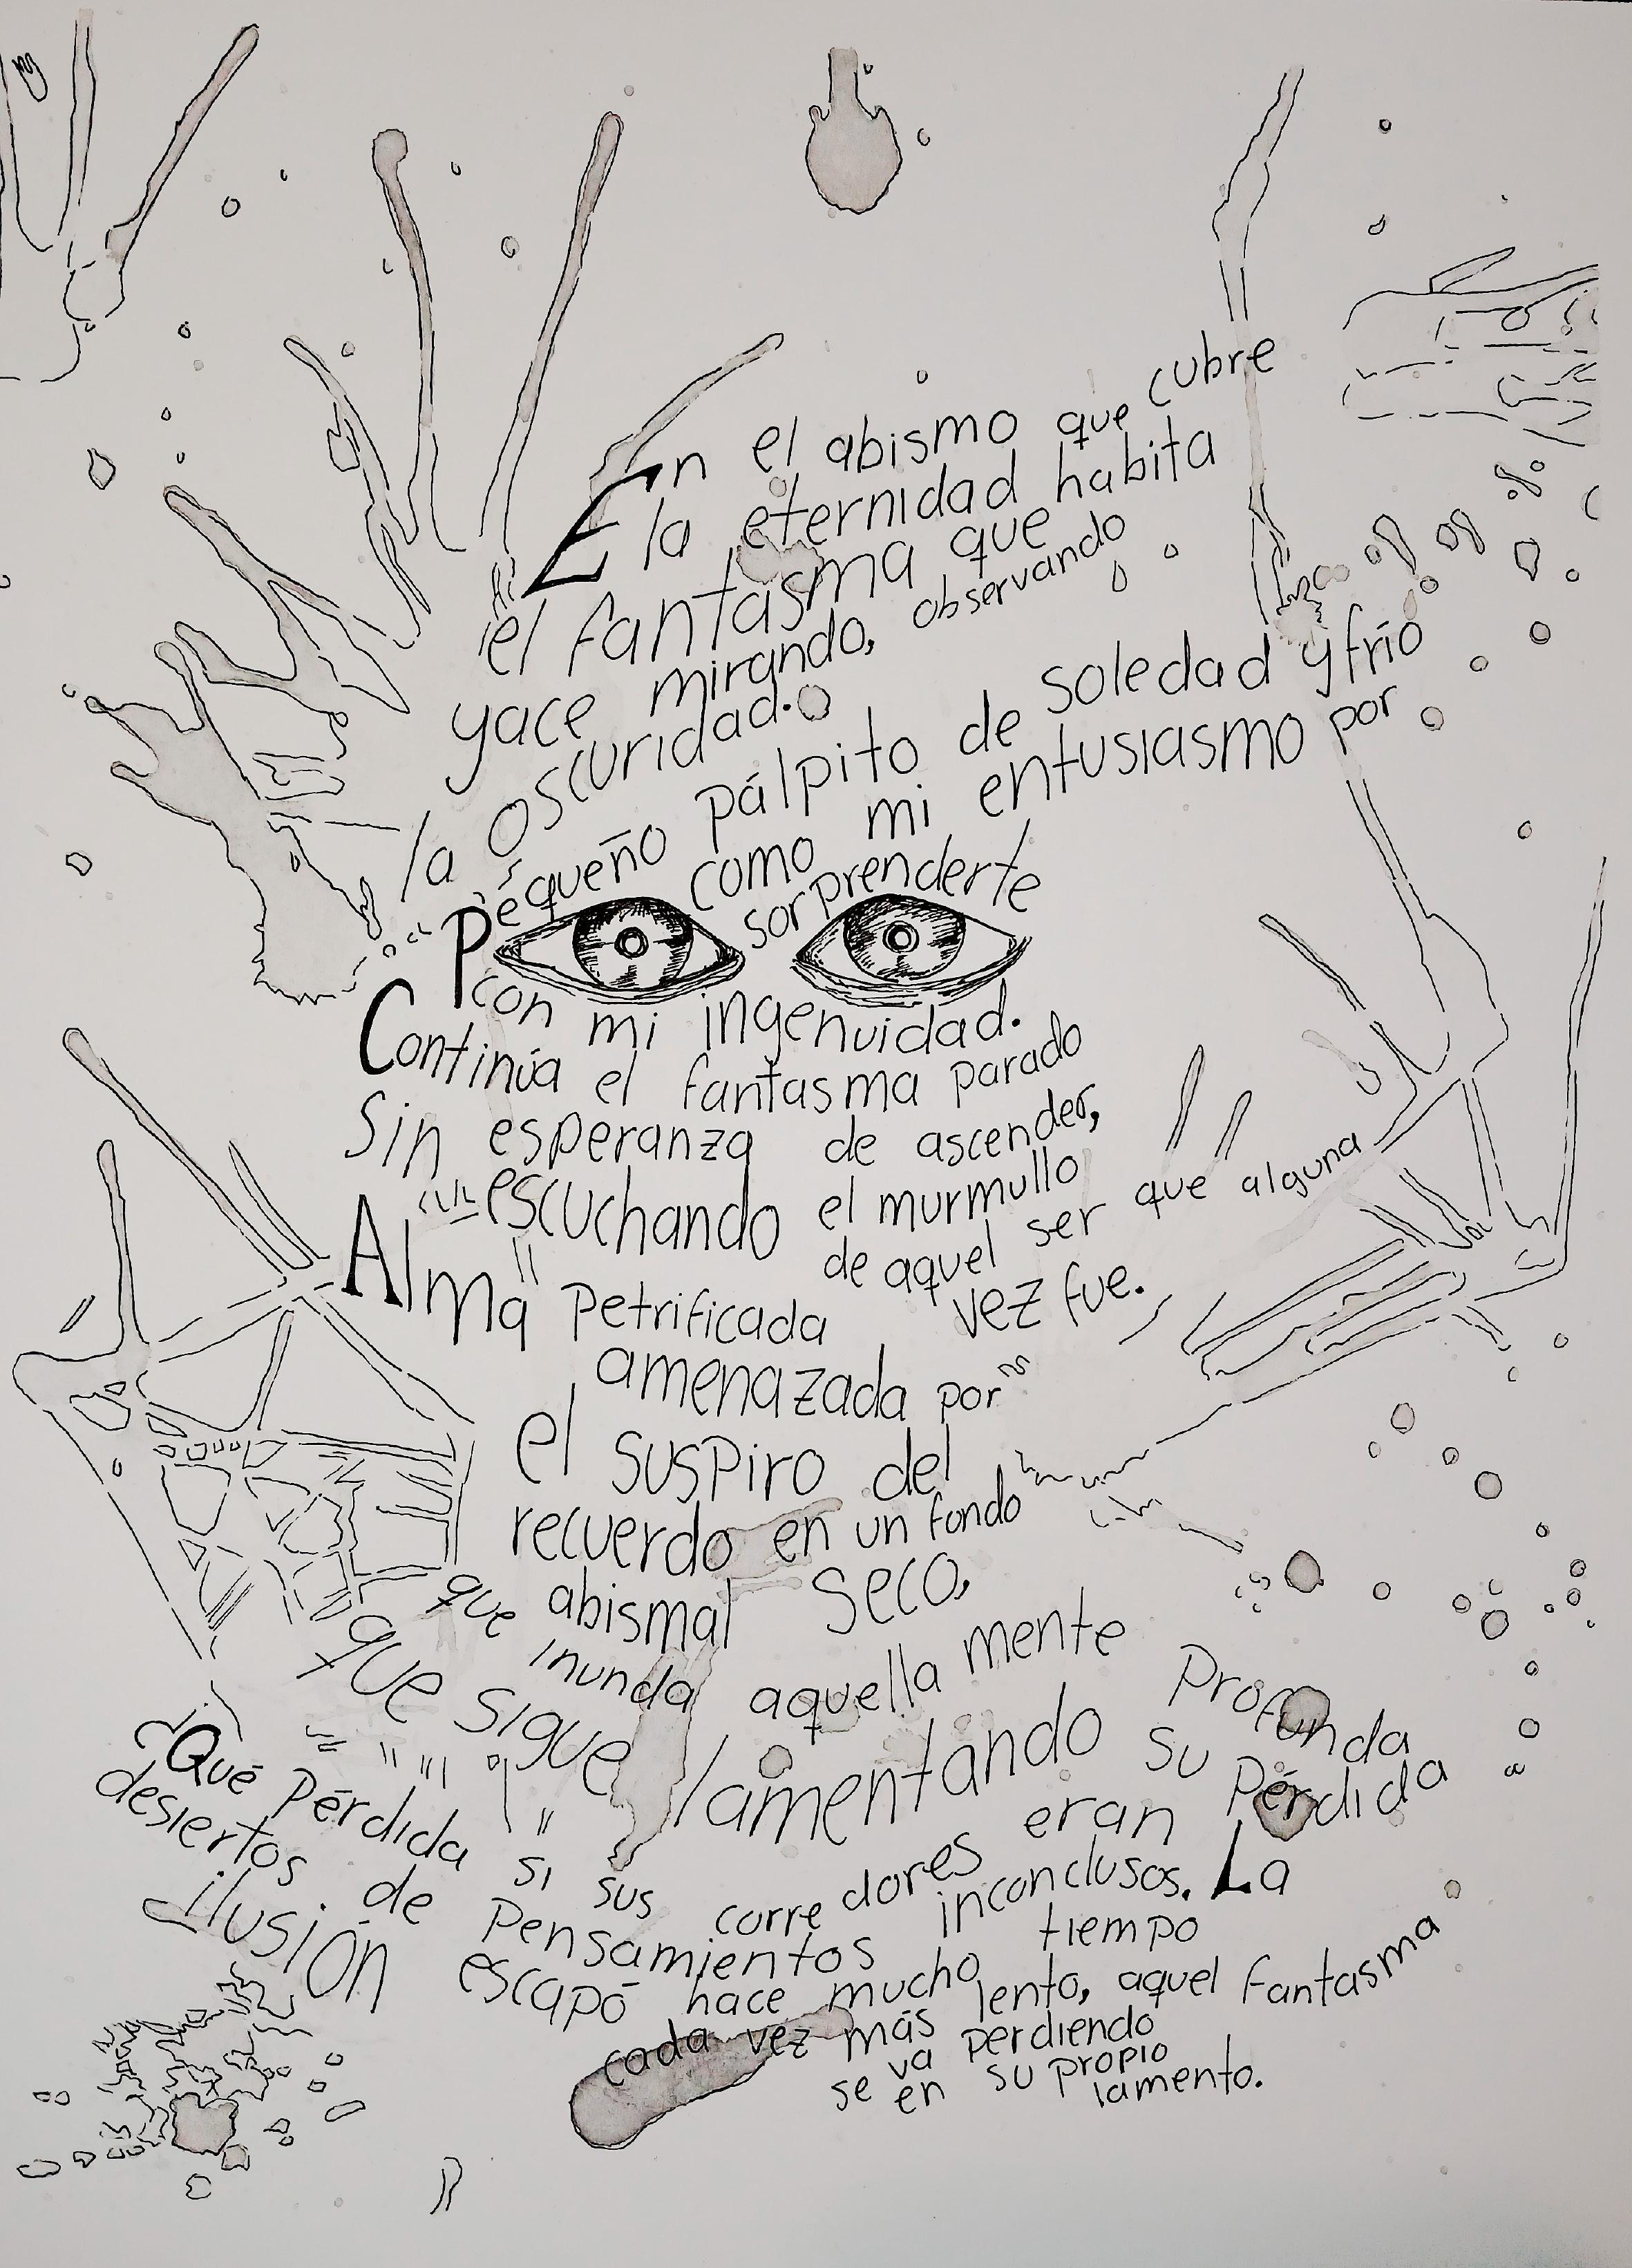 En el abismo que cubre
la eternidad habita
el fantasma que
yace mirando, observando
la oscuridad.
Pequeño pálpito de soledad y frío
como mi entusiasmo por
sorprenderte
con mi ingenuidad.
Continúa el fantasma parado
sin esperanza de ascender,
escuchando el murmullo
de aquel ser que alguna
vez fue.
Alma petrificada
amenazada por
el suspiro del
recuerdo en un fondo
abismal seco,
que inunda aquella mente profunda
que sigue lamentando su pérdida
¿Qué pérdida si sus corredores eran
desiertos de pensamientos inconclusos. La
ilusión escapó hace mucho tiempo
cada vez más lento, aquel fantasma
se va perdiendo
en su propio
lamento.